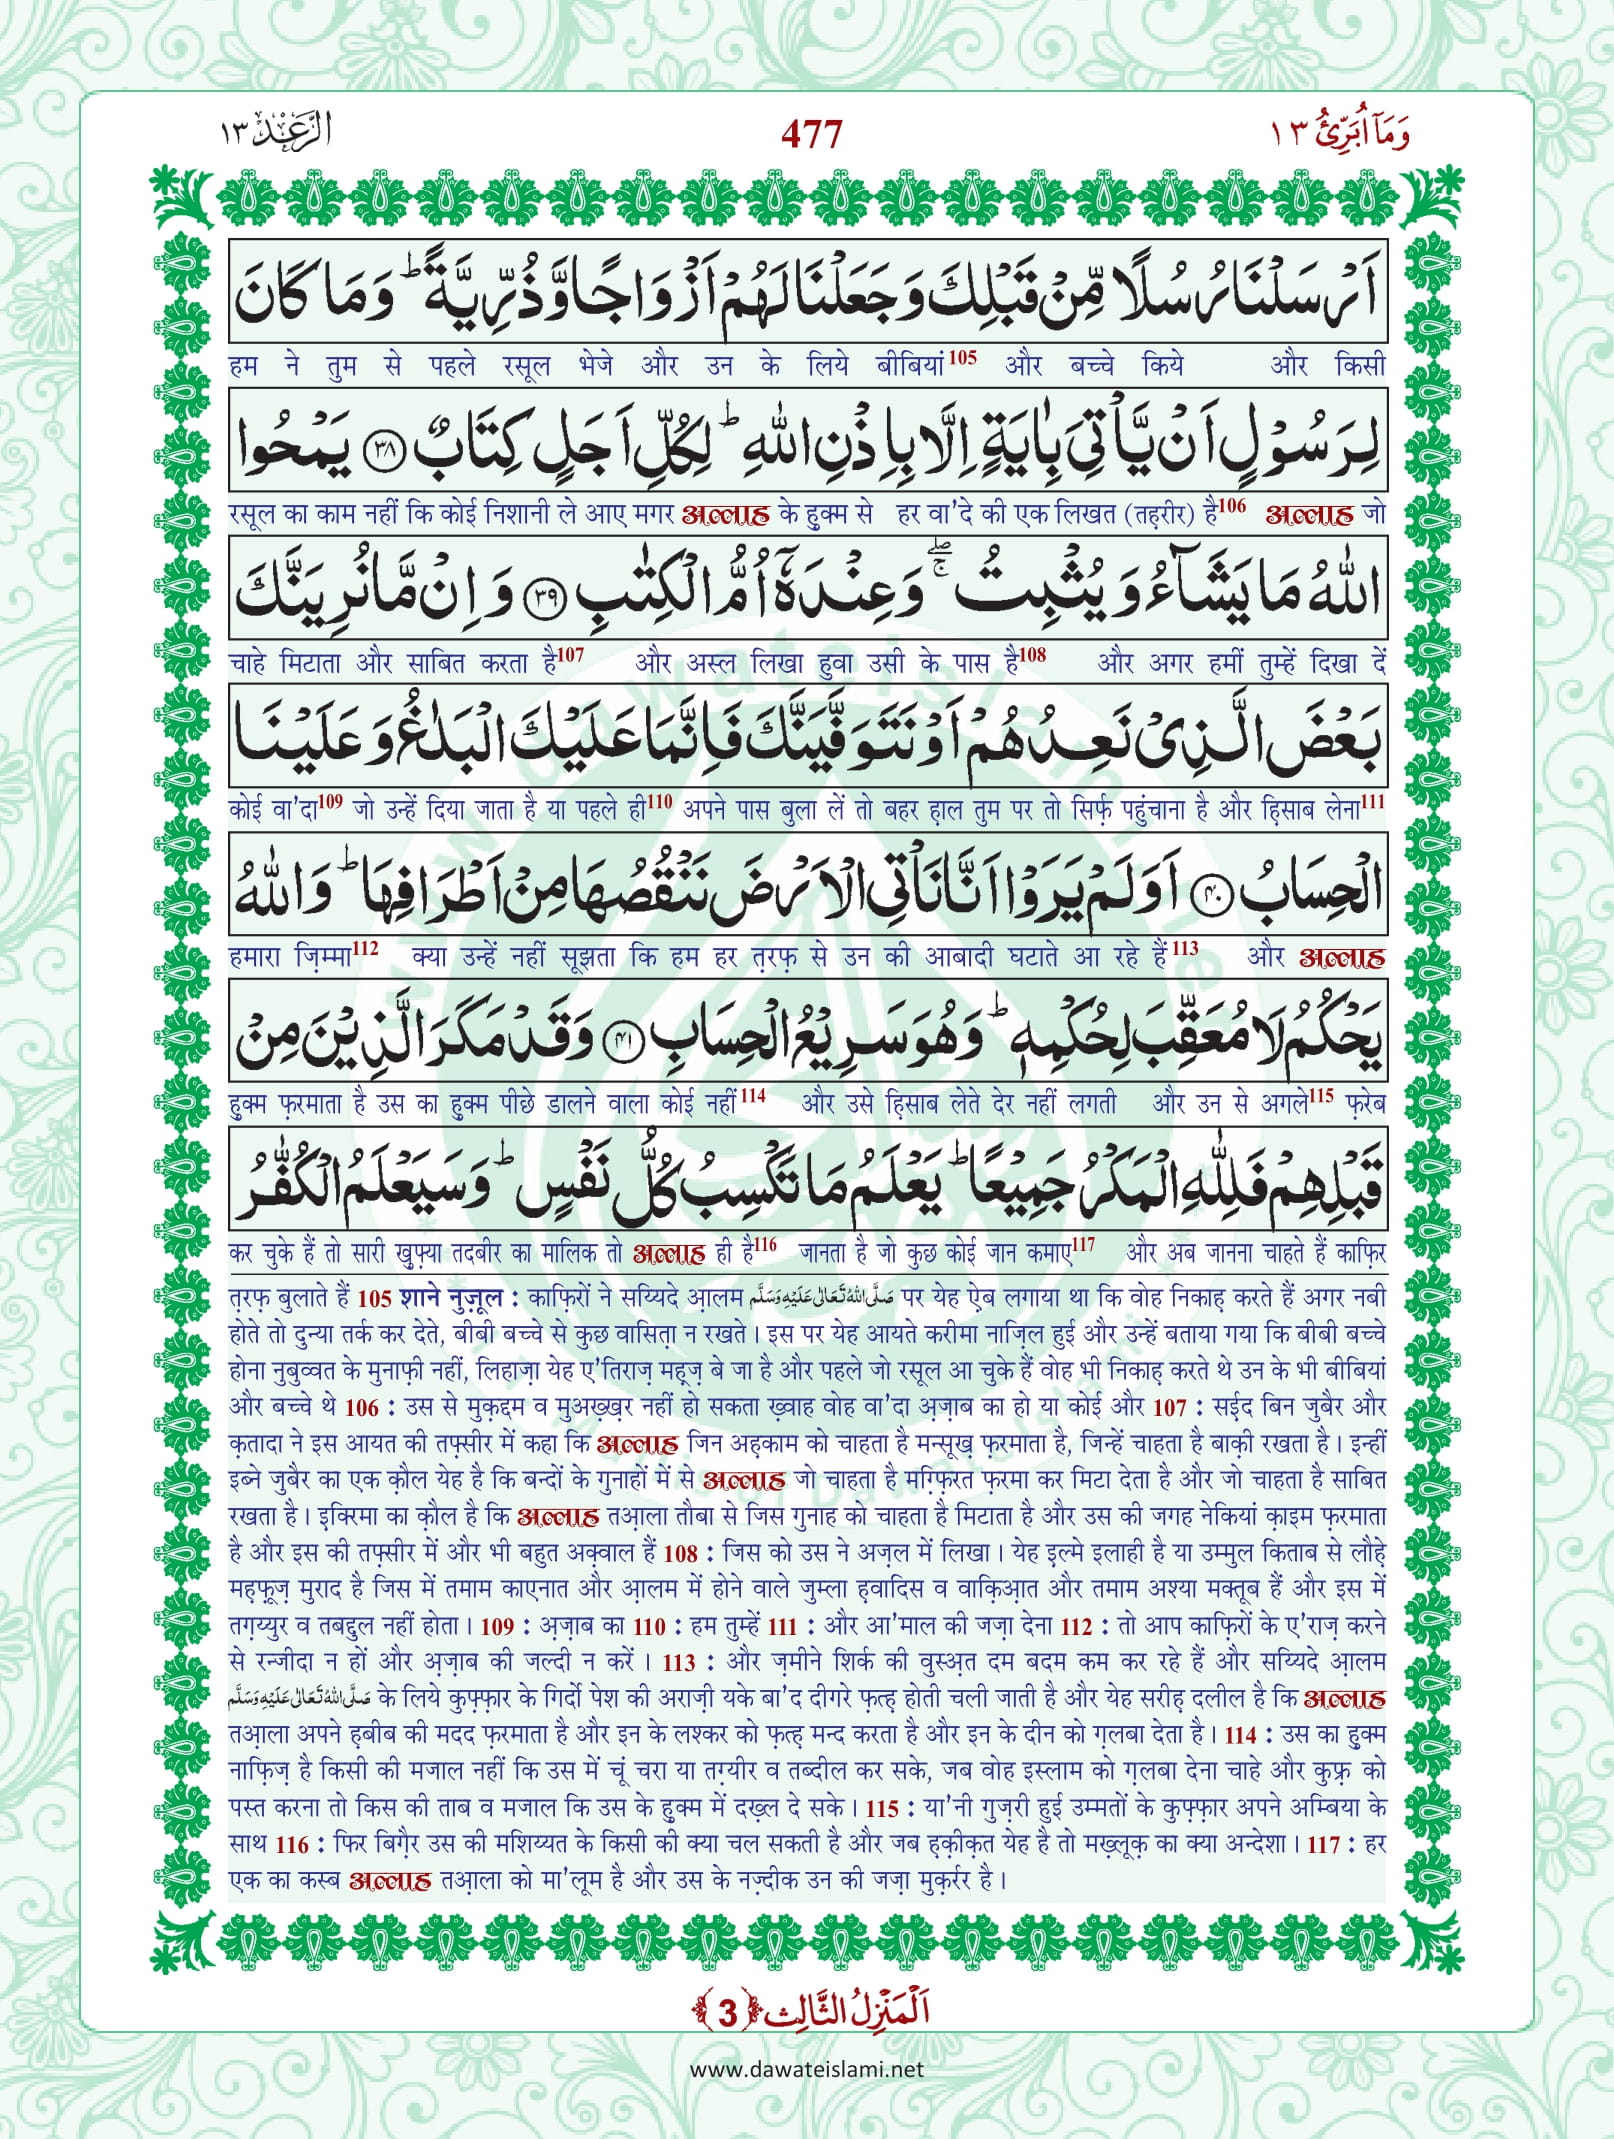 وَمَآ اُبَرِّئُ ١٣
477
الرَّعْد ١٣
اَرْسَلْنَا رُسُلًا مِّنْ قَبْلِكَ وَجَعَلْنَا لَهُمْ اَزْوَاجًا وَّذُرِّيَّةً ؕ وَمَا كَانَ
हम ने तुम से पहले रसूल भेजे और उन के लिये बीबियां105 और बच्चे किये और किसी
لِرَسُوْلٍ اَنْ يَّاْتِيَ بِاٰيَةٍ اِلَّا بِاِذْنِ اللّٰهِ ؕ لِكُلِّ اَجَلٍ كِتَابٌ ﴿٣٨﴾ يَمْحُوا
रसूल का काम नहीं कि कोई निशानी ले आए मगर अल्लाह के हुक्म से हर वा'दे की एक लिखत (तह़रीर) है106 अल्लाह जो
اللّٰهُ مَا يَشَآءُ وَيُثْبِتُ ۚۖ وَعِنْدَهٗۤ اُمُّ الْكِتٰبِ ﴿٣٩﴾ وَاِنْ مَّا نُرِيَنَّكَ
चाहे मिटाता और साबित करता है107 और अस्ल लिखा हुवा उसी के पास है108 और अगर हमीं तुम्हें दिखा दें
بَعْضَ الَّذِيْ نَعِدُهُمْ اَوْ نَتَوَفَّيَنَّكَ فَاِنَّمَا عَلَيْكَ الْبَلٰغُ وَعَلَيْنَا
कोई वा'दा109 जो उन्हें दिया जाता है या पहले ही110 अपने पास बुला लें तो बहर ह़ाल तुम पर तो सिर्फ़ पहुंचाना है और ह़िसाब लेना111
الْحِسَابُ ﴿٤٠﴾ اَوَلَمْ يَرَوْا اَنَّا نَاْتِي الْاَرْضَ نَنْقُصُهَا مِنْ اَطْرَافِهَا ؕ وَاللّٰهُ
हमारा ज़िम्मा112 क्या उन्हें नहीं सूझता कि हम हर त़रफ़ से उन की आबादी घटाते आ रहे हैं113 और अल्लाह
يَحْكُمُ لَا مُعَقِّبَ لِحُكْمِهٖ ؕ وَهُوَ سَرِيْعُ الْحِسَابِ ﴿٤١﴾ وَقَدْ مَكَرَ الَّذِيْنَ مِنْ
हुक्म फ़रमाता है उस का हुक्म पीछे डालने वाला कोई नहीं114 और उसे ह़िसाब लेते देर नहीं लगती और उन से अगले115 फ़रेब
قَبْلِهِمْ فَلِلّٰهِ الْمَكْرُ جَمِيْعًا ؕ يَعْلَمُ مَا تَكْسِبُ كُلُّ نَفْسٍ ؕ وَسَيَعْلَمُ الْكُفّٰرُ
कर चुके हैं तो सारी खुफ़्या तदबीर का मालिक तो अल्लाह ही है116 जानता है जो कुछ कोई जान कमाए117 और अब जानना चाहते हैं काफ़िर
त़रफ़ बुलाते हैं 105 शाने नुज़ूल : काफ़िरों ने सय्यिदे आ़लम صَلَّى اللهُ تَعَالٰى عَلَيْهِ وَسَلَّم पर येह ऐब लगाया था कि वोह निकाह़ करते हैं अगर नबी
होते तो दुन्या तर्क कर देते, बीबी बच्चे से कुछ वासित़ा न रखते। इस पर येह आयते करीमा नाज़िल हुई और उन्हें बताया गया कि बीबी बच्चे
होना नुबुव्वत के मुनाफ़ी नहीं, लिहाज़ा येह ए'तिराज़ मह़ज़ बे जा है और पहले जो रसूल आ चुके हैं वोह भी निकाह़ करते थे उन के भी बीबियां
और बच्चे थे 106 : उस से मुक़द्दम व मुअख़्ख़र नहीं हो सकता ख़्वाह वोह वा'दा अ़ज़ाब का हो या कोई और 107 : सई़द बिन जुबैर और
क़तादा ने इस आयत की तफ़्सीर में कहा कि अल्लाह जिन अह़काम को चाहता है मन्सूख़ फ़रमाता है, जिन्हें चाहता है बाक़ी रखता है। इन्हीं
इब्ने जुबैर का एक क़ौल येह है कि बन्दों के गुनाहों में से अल्लाह जो चाहता है मग़्फ़िरत फ़रमा कर मिटा देता है और जो चाहता है साबित
रखता है। इक्रिमा का क़ौल है कि अल्लाह तआ़ला तौबा से जिस गुनाह को चाहता है मिटाता है और उस की जगह नेकियां क़ाइम फ़रमाता
है और इस की तफ़्सीर में और भी बहुत अक़्वाल हैं 108 : जिस को उस ने अज़ल में लिखा। येह इ़ल्मे इलाही है या उम्मुल किताब से लौह़े
मह़फ़ूज़ मुराद है जिस में तमाम काएनात और आ़लम में होने वाले जुम्ला ह़वादिस व वाक़िआ़त और तमाम अश्या मक्तूब हैं और इस में
तग़य्युर व तबद्दुल नहीं होता। 109 : अ़ज़ाब का 110 : हम तुम्हें 111 : और आ'माल की जज़ा देना 112 : तो आप काफ़िरों के ए'राज़ करने
से रन्जीदा न हों और अ़ज़ाब की जल्दी न करें। 113 : और ज़मीने शिर्क की वुस्अ़त दम बदम कम कर रहे हैं और सय्यिदे आ़लम
صَلَّى اللهُ تَعَالٰى عَلَيْهِ وَسَلَّم के लिये कुफ़्फ़ार के गिर्दो पेश की अराज़ी यके बा'द दीगरे फ़त्ह़ होती चली जाती है और येह सरीह़ दलील है कि अल्लाह
तआ़ला अपने ह़बीब की मदद फ़रमाता है और इन के लश्कर को फ़त्ह़ मन्द करता है और इन के दीन को ग़लबा देता है। 114 : उस का हुक्म
नाफ़िज़ है किसी की मजाल नहीं कि उस में चूं चरा या तग़्यीर व तब्दील कर सके, जब वोह इस्लाम को ग़लबा देना चाहे और कुफ़्र को
पस्त करना तो किस की ताब व मजाल कि उस के हुक्म में दख़्ल दे सके। 115 : या'नी गुज़री हुई उम्मतों के कुफ़्फ़ार अपने अम्बिया के
साथ 116 : फिर बिग़ैर उस की मशिय्यत के किसी की क्या चल सकती है और जब ह़क़ीक़त येह है तो मख़्लूक़ का क्या अन्देशा। 117 : हर
एक का कस्ब अल्लाह तआ़ला को मा'लूम है और उस के नज़्दीक उन की जज़ा मुक़र्रर है।
اَلْمَنْزِلُ الثَّالِث ﴿3﴾
www.dawateislami.net